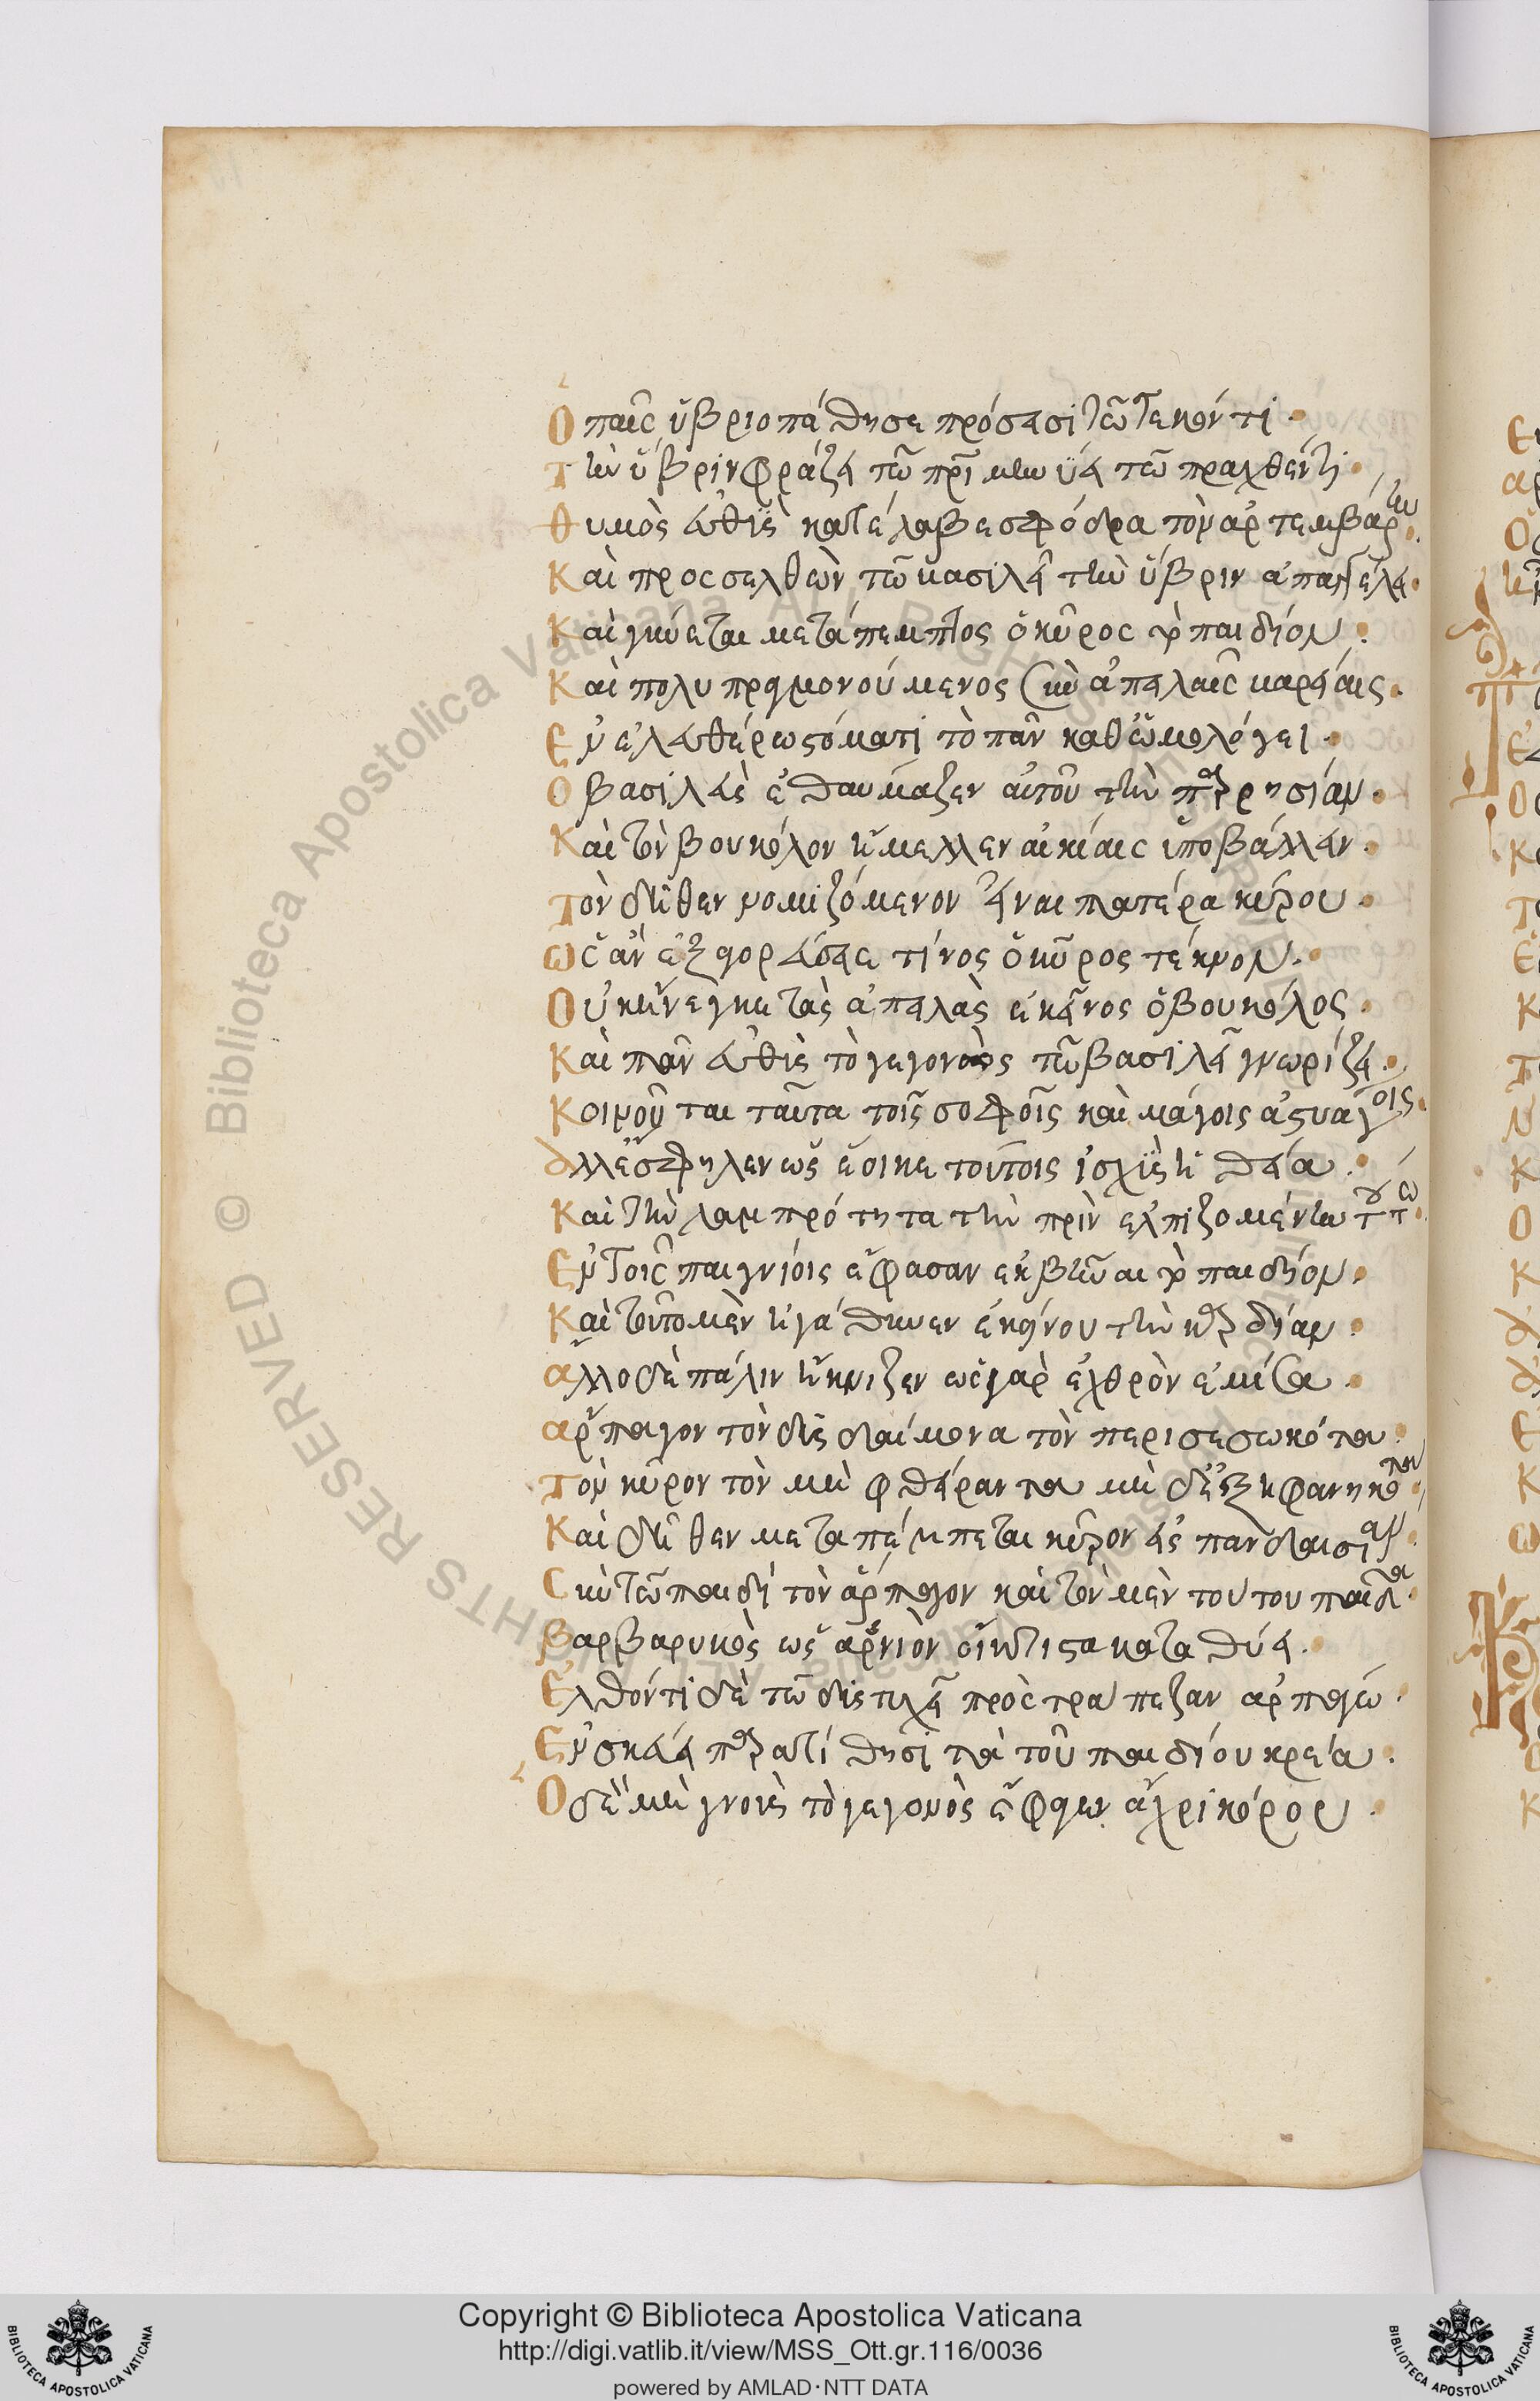 Ὁ παῖς ὑβριοπάθησε πρόσεισι τῶ τεκόντι·
Τὴν ὕβριν φράζει τῶ πρὶ μὴν ὑει τῶ πραχθέντι·
Θυμὸς εὐθὺς κατέλαβε σφόδρα τὸν ἀρτεμβάρην·
Καὶ προσελθὼν τῶ βασιλεῖ τὴν ὕβριν ἀπαγγέλει·
Καὶ γίνεται μετάπεμπτος ὁ κῦρος τὸ παιδίον·
Καὶ πολυπραγμονούμενος σὺν ἀπειλαῖς βαρείαις·
Ἐν ἐλευθέρω στόματι τὸ πᾶν καθωμολόγει·
Ὁ βασιλεὺς ἐθαύμαζεν αὐτοῦ τὴν παρρησίαν·
Καὶ τὸν βουκόλον ἤμελλεν αἰκίαις ὑποβάλλειν·
Τὸν δῆθεν νομιζόμενον εἶναι πατέρα κύρου·
Ὡς ἂν ἐξαγορεύσειε τίνος ὁ κῦρος τέκνον·
Οὐκ ἤνεγκε τὰς ἀπειλὰς ἐκεῖνος ὁ βουκόλος·
Καὶ πᾶν εὐθὺς τὸ γεγονὸς τῶ βασιλεῖ γνωρίζει·
Κοινοῦται ταῦτα τοῖς σοφοῖς καὶ μάγοις ἀστυάγοις·
Ἀλλ' ἔσφηλεν ὡς ἔοικε τούτοις ἰσχὺς ἡ θεία·
Καὶ τὴν λαμπρότητα τὴν πρὶν ἐλπιζομένην τούτω·
Ἐν τοῖς παιγνίοις ἔφασαν ἐκβῆναι τὸ παιδίον·
Καὶ τοῦτο μὲν ἠγάθυνεν ἐκείνου τὴν καρδίαν·
Ἄλλο δὲ πάλιν ἔκνιζεν ὡς γὰρ ἐχθρὸν ἐμίσει·
Ἅρπαγον τὸν δυσδαίμονα τὸν περισεσωκότα·
Τὸν κῦρον τὸν μὴ φθείραντα μὴ δ' ἐξηφανηκότα·
Καὶ δῆθεν μεταπέμπεται κῦρον εἰς πανδαισίαν·
Σὺν τῶ παιδὶ τὸν ἅρπαγον καὶ τὸν μὲν τούτου παῖδα·
Βαρβαρικὸς ὡς ἄρνιον οἴκτιστα καταθύει·
Ἐλθόντι δὲ τῶ δυστυχεῖ πρὸς τράπεζαν ἁρπάγω·
Ἐν σκεύει παρατίθησι τὰ τοῦ παιδίου κρέα·
Ὁ δὲ μὴ γνοὺς τὸ γεγονὸς ἔφαγεν ἄχρι κόρου·